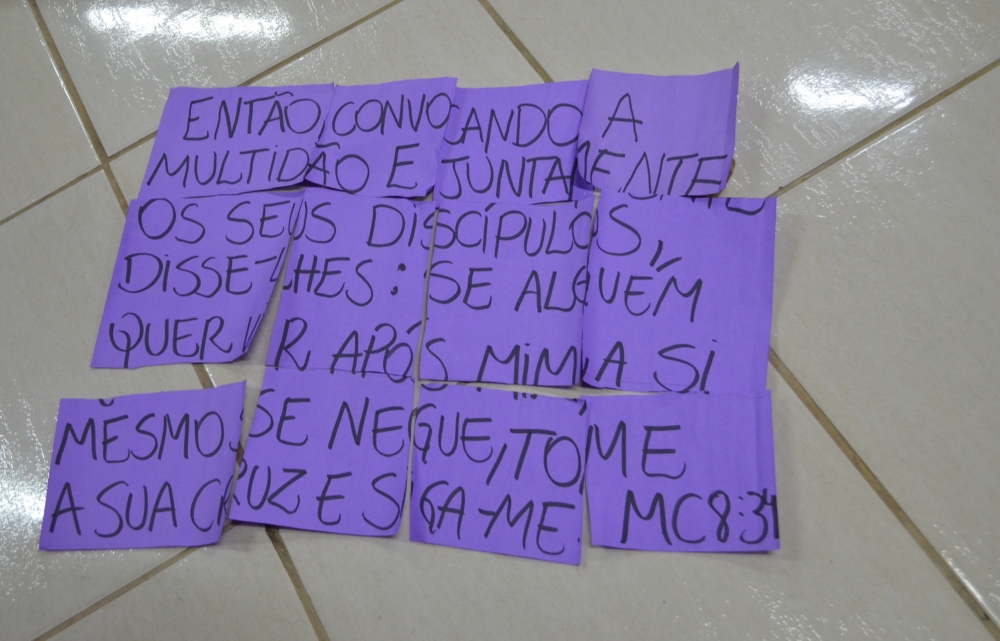 ENTÃO, CONVOCANDO A
MULTIDÃO E JUNTAMENTE
OS SEUS DISCÍPULOS,
DISSE-LHES: SE ALGUÉM
QUER VIR APÓS MIM, A SI
MESMO SE NEGUE, TOME
A SUA CRUZ E SIGA-ME.
MC 8:34